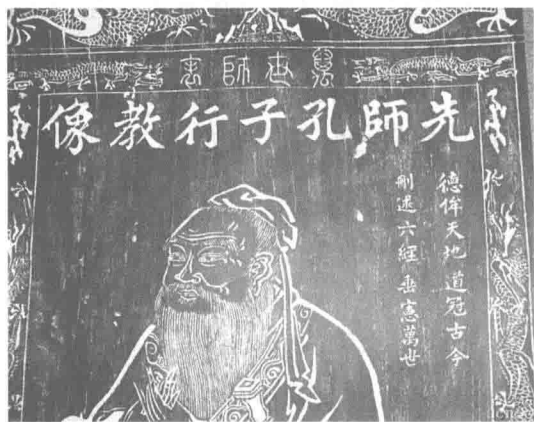 萬世師表
先師孔子行教像
德侔天地道冠古今
刪述六經垂憲萬世